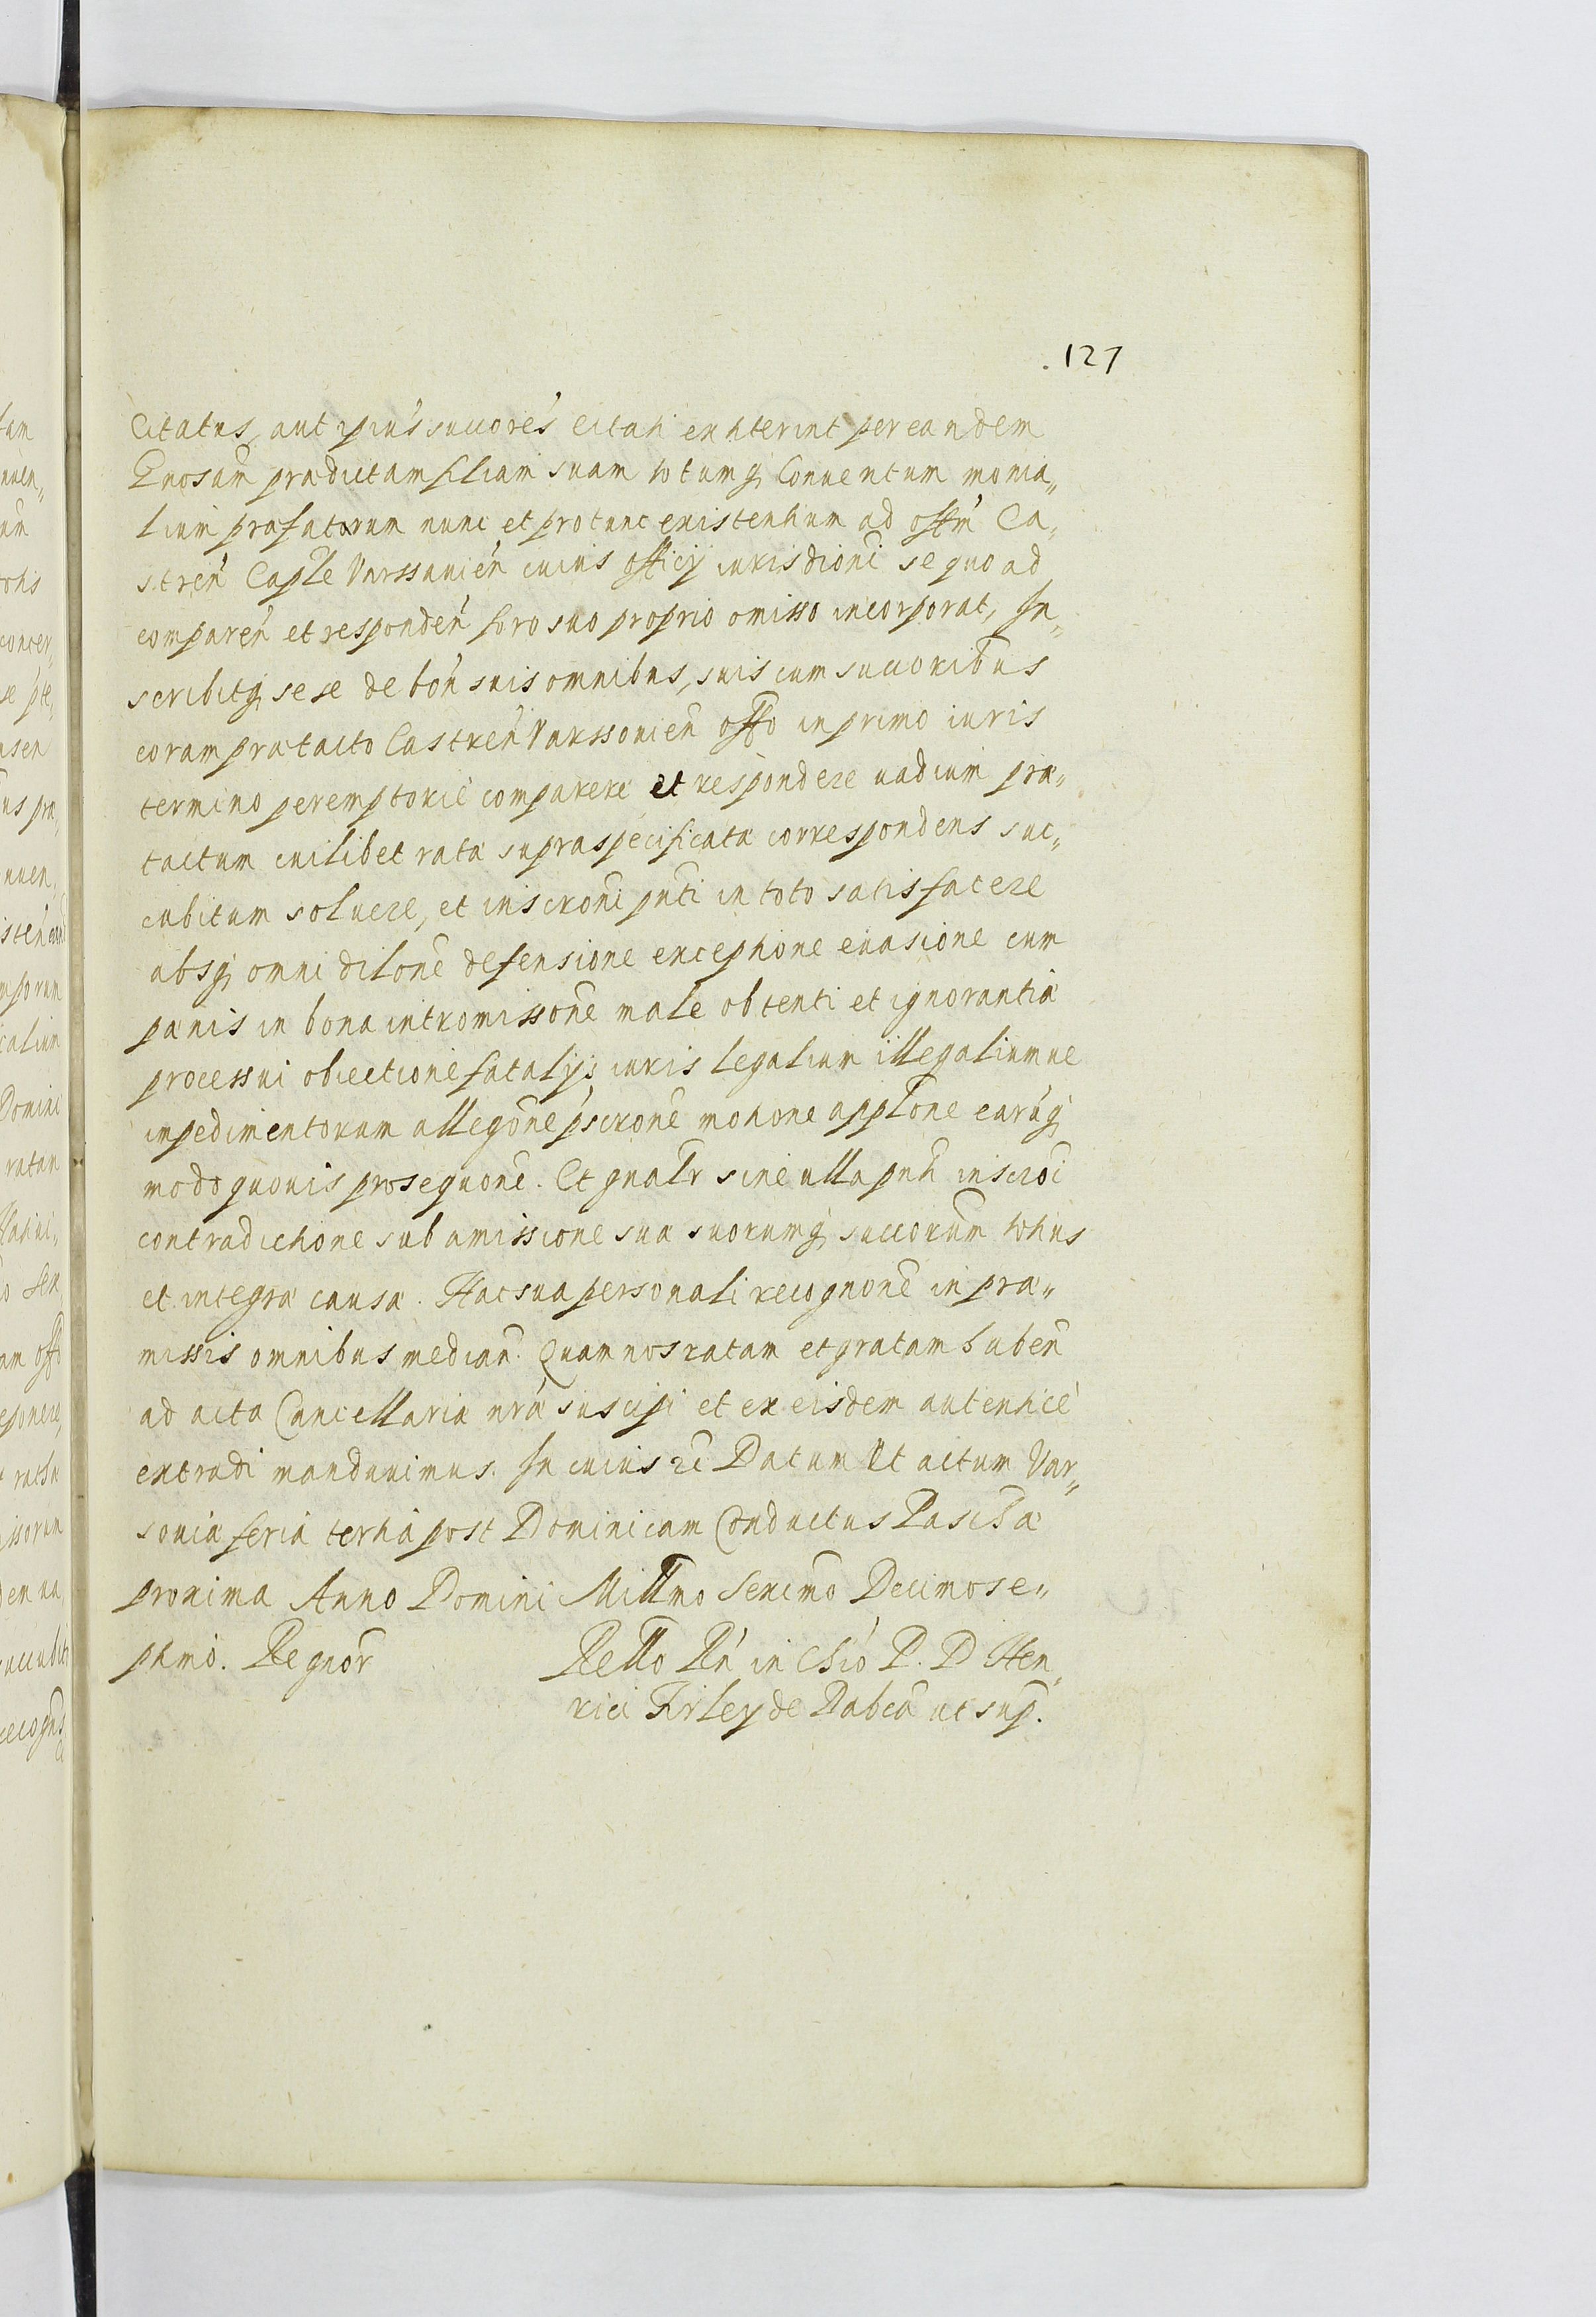 127
Citatus, aut ipius succores citati extiterint per eandem
Gnosam prædictam filiam suam totumq Conuentum monia„
lium præfatorum nunc et pro tunc existentium ad offm Ca„
stren Caple Varssauien cuius officy iurisdioni se quo ad
comparen et responden foro suo proprio omisso incorporat, In„
scribitq sese de bon suis omnibus, suis cum succoribus
coram prætacto Castren Varssouien offo in primo iuris
termino peremptorie comparere et respondere uadium præ„
tactum cuilibet ratæ supraspecificatæ correspondens suc„
cubitum soluere, et inscroni pnti in toto satisfacere
absq omni dilone defensione exceptione euasione cum
pænis in bona intromissone male obtenti et ignorantiæ
processui obiectione fatalys iuris legalium illegaliumue
impedimentorum allegone pscrone motione applone earuq
modo quouis prosequone. Et gnalr sine ulla pnti inscroi
contradictione sub amissione sua suorumq succorum totius
et integræ causæ. Hac sua personali recognone in præ„
missis omnibus median. Quam nos ratam et gratam haben
ad acta Cancellariæ nræ suscipi et ex eisdem autentice
extradi mandauimus. In cuius rei Datum et actum Var„
souiæ feria tertia post Dominicam Conductus Paschæ
proxima Anno Domini Millmo Sexcmo Decimose„
ptimo. Regnor Rello Rn in Chro P. D Hen„
rici Firley de Dabca ut sup.